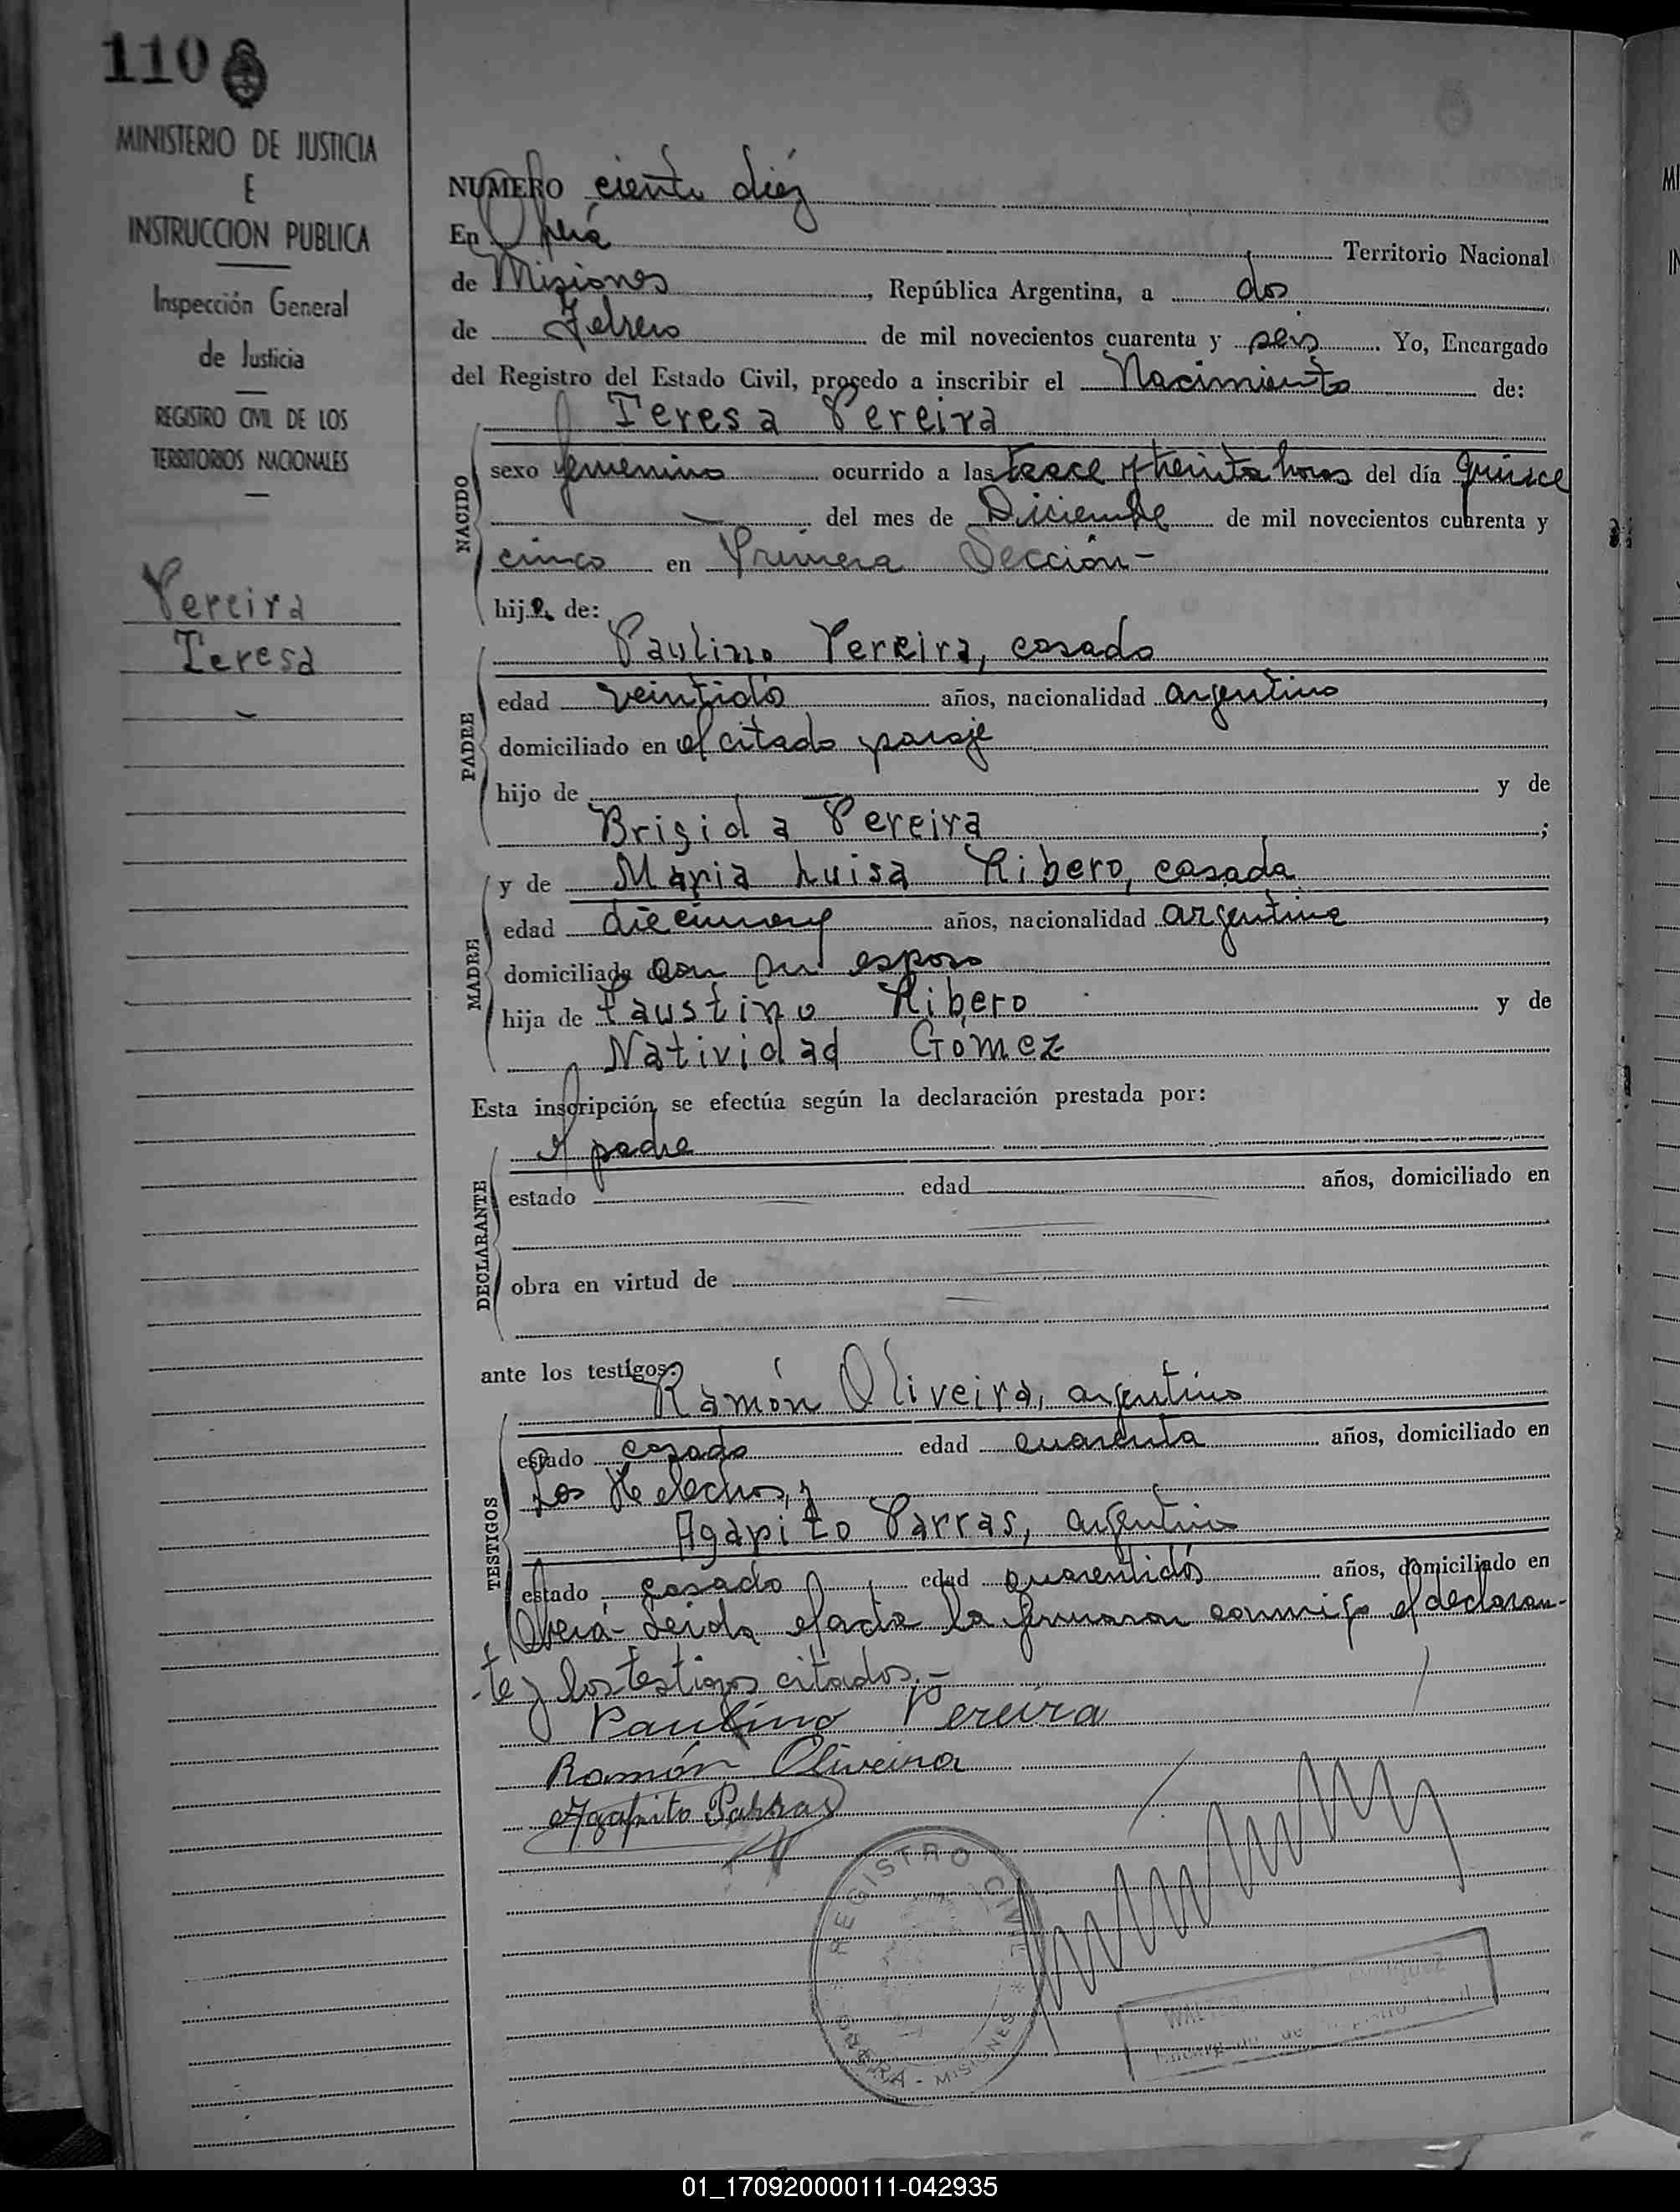 110
MINISTERIO DE JUSTICIA
E
INSTRUCCION PUBLICA
Inspección General
de Justicia
REGISTRO CIVIL DE LOS
TERRITORIOS NACIONALES
Pereira
Teresa
NUMERO ciento diez
En Oberá Territorio Nacional
de Misiones, República Argentina, a dos
de Febrero de mil novecientos cuarenta y seis. Yo, Encargado
del Registro del Estado Civil, procedo a inscribir el Nacimiento de:
Teresa Pereira
NACIDO
sexo femenino ocurrido a las trece y treinta horas del día quince
del mes de Diciembre de mil novecientos cuarenta y
cinco en Primera Sección-
hija de:
PADRE
Paulino Pereira, casado
edad veintidós años, nacionalidad argentino,
domiciliado en el citado paraje
hijo de y de
Brigida Pereira;
MADRE
y de Maria Luisa Ribero, casada
edad diecinueve años, nacionalidad argentina,
domiciliada con su esposo
hija de Faustino Ribero y de
Natividad Gomez
Esta inscripción se efectúa según la declaración prestada por:
DECLARANTE
el padre
estado edad años, domiciliado en
obra en virtud de
ante los testigos:
TESTIGOS
Ramón Oliveira, argentino
estado casado edad cuarenta años, domiciliado en
Los Helechos, y
Agapito Parras, argentino
estado casado edad cuarentidós años, domiciliado en
Oberá- Leida el acta la firmaron conmigo el declaran-
-te y los testigos citados.-
Paulino Pereira
Ramón Oliveira
Agapito Parras
REGISTRO CIVIL
OBERA - MISIONES
01_170920000111-042935